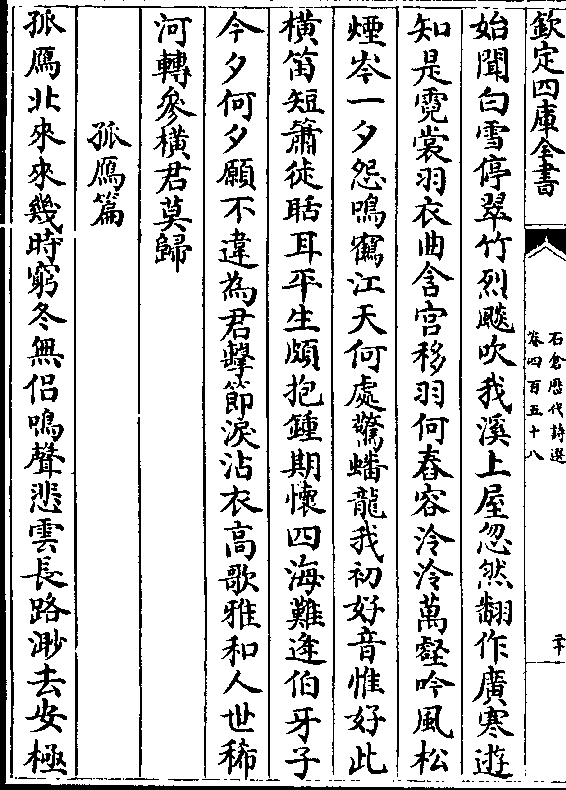 欽定四庫全書
石倉歷代詩選
卷四百五十八
二十
始聞白雪停翠竹烈颷吹我溪上屋忽然翻作廣寒遊
知是霓裳羽衣曲含宫移羽何舂容泠泠萬壑吟風松
煙岑一夕怨鳴鶴江天何處驚蟠龍我初好音惟好此
横笛短簫徒聒耳平生頗抱鍾期懐四海難逢伯牙子
今夕何夕願不違為君擊節淚沾衣高歌雅和人世稀
河轉參横君莫歸
孤鴈篇
孤鴈北來來幾時窮冬無侣鳴聲悲雲長路渺去安極